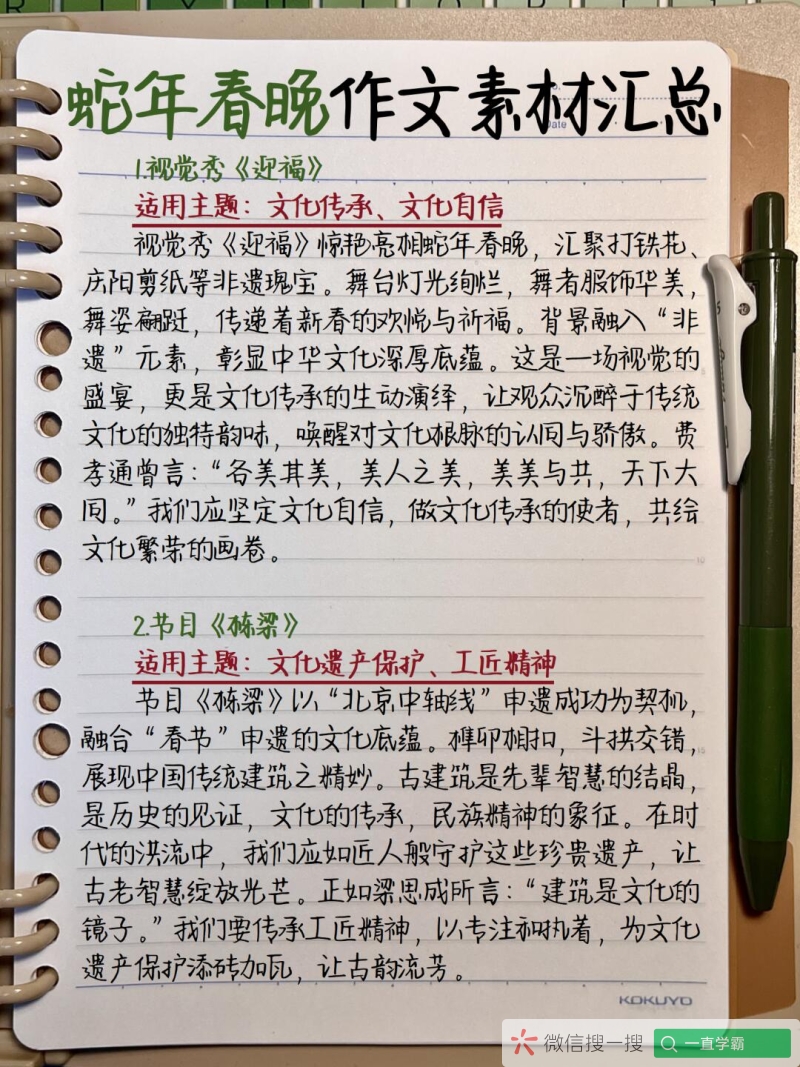 蛇年春晚作文素材汇总
1.视觉秀《迎福》
适用主题：文化传承、文化自信
视觉秀《迎福》惊艳亮相蛇年春晚，汇聚打铁花、
庆阳剪纸等非遗瑰宝。舞台灯光绚烂，舞者服饰华美，
舞姿翩跹，传递着新春的欢悦与祈福。背景融入“非
遗”元素，彰显中华文化深厚底蕴。这是一场视觉的
盛宴，更是文化传承的生动演绎，让观众沉醉于传统
文化的独特韵味，唤醒对文化根脉的认同与骄傲。费
孝通曾言：“各美其美，美人之美，美美与共，天下大
同。”我们应坚定文化自信，做文化传承的使者，共绘
文化繁荣的画卷。
2.节目《栋梁》
适用主题：文化遗产保护、工匠精神
节目《栋梁》以“北京中轴线”申遗成功为契机，
融合“春节”申遗的文化底蕴。榫卯相扣，斗拱交错，
展现中国传统建筑之精妙。古建筑是先辈智慧的结晶，
是历史的见证，文化的传承，民族精神的象征。在时
代的洪流中，我们应如匠人般守护这些珍贵遗产，让
古老智慧绽放光芒。正如梁思成所言：“建筑是文化的
镜子。”我们要传承工匠精神，以专注和执着，为文化
遗产保护添砖加瓦，让古韵流芳。
KOKUYO
微信搜一搜
一直学霸